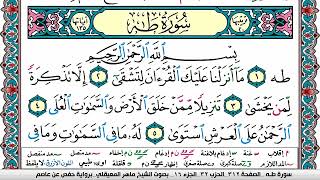 سُورَةُ طه
بِسْمِ اللَّهِ الرَّحْمَٰنِ الرَّحِيمِ
طه ١ مَا أَنزَلْنَا عَلَيْكَ الْقُرْءَانَ لِتَشْقَىٰ ٢ إِلَّا تَذْكِرَةً
لِّمَن يَخْشَىٰ ٣ تَنزِيلًا مِّمَّنْ خَلَقَ الْأَرْضَ وَالسَّمَٰوَٰتِ الْعُلَى ٤
الرَّحْمَٰنُ عَلَى الْعَرْشِ اسْتَوَىٰ ٥ لَهُ مَا فِي السَّمَٰوَٰتِ وَمَا فِي
سورة طه، الصفحة ٣١٢ الجزء ١٦، بصوت الشيخ ماهر المعيقلي، برواية حفص عن عاصم